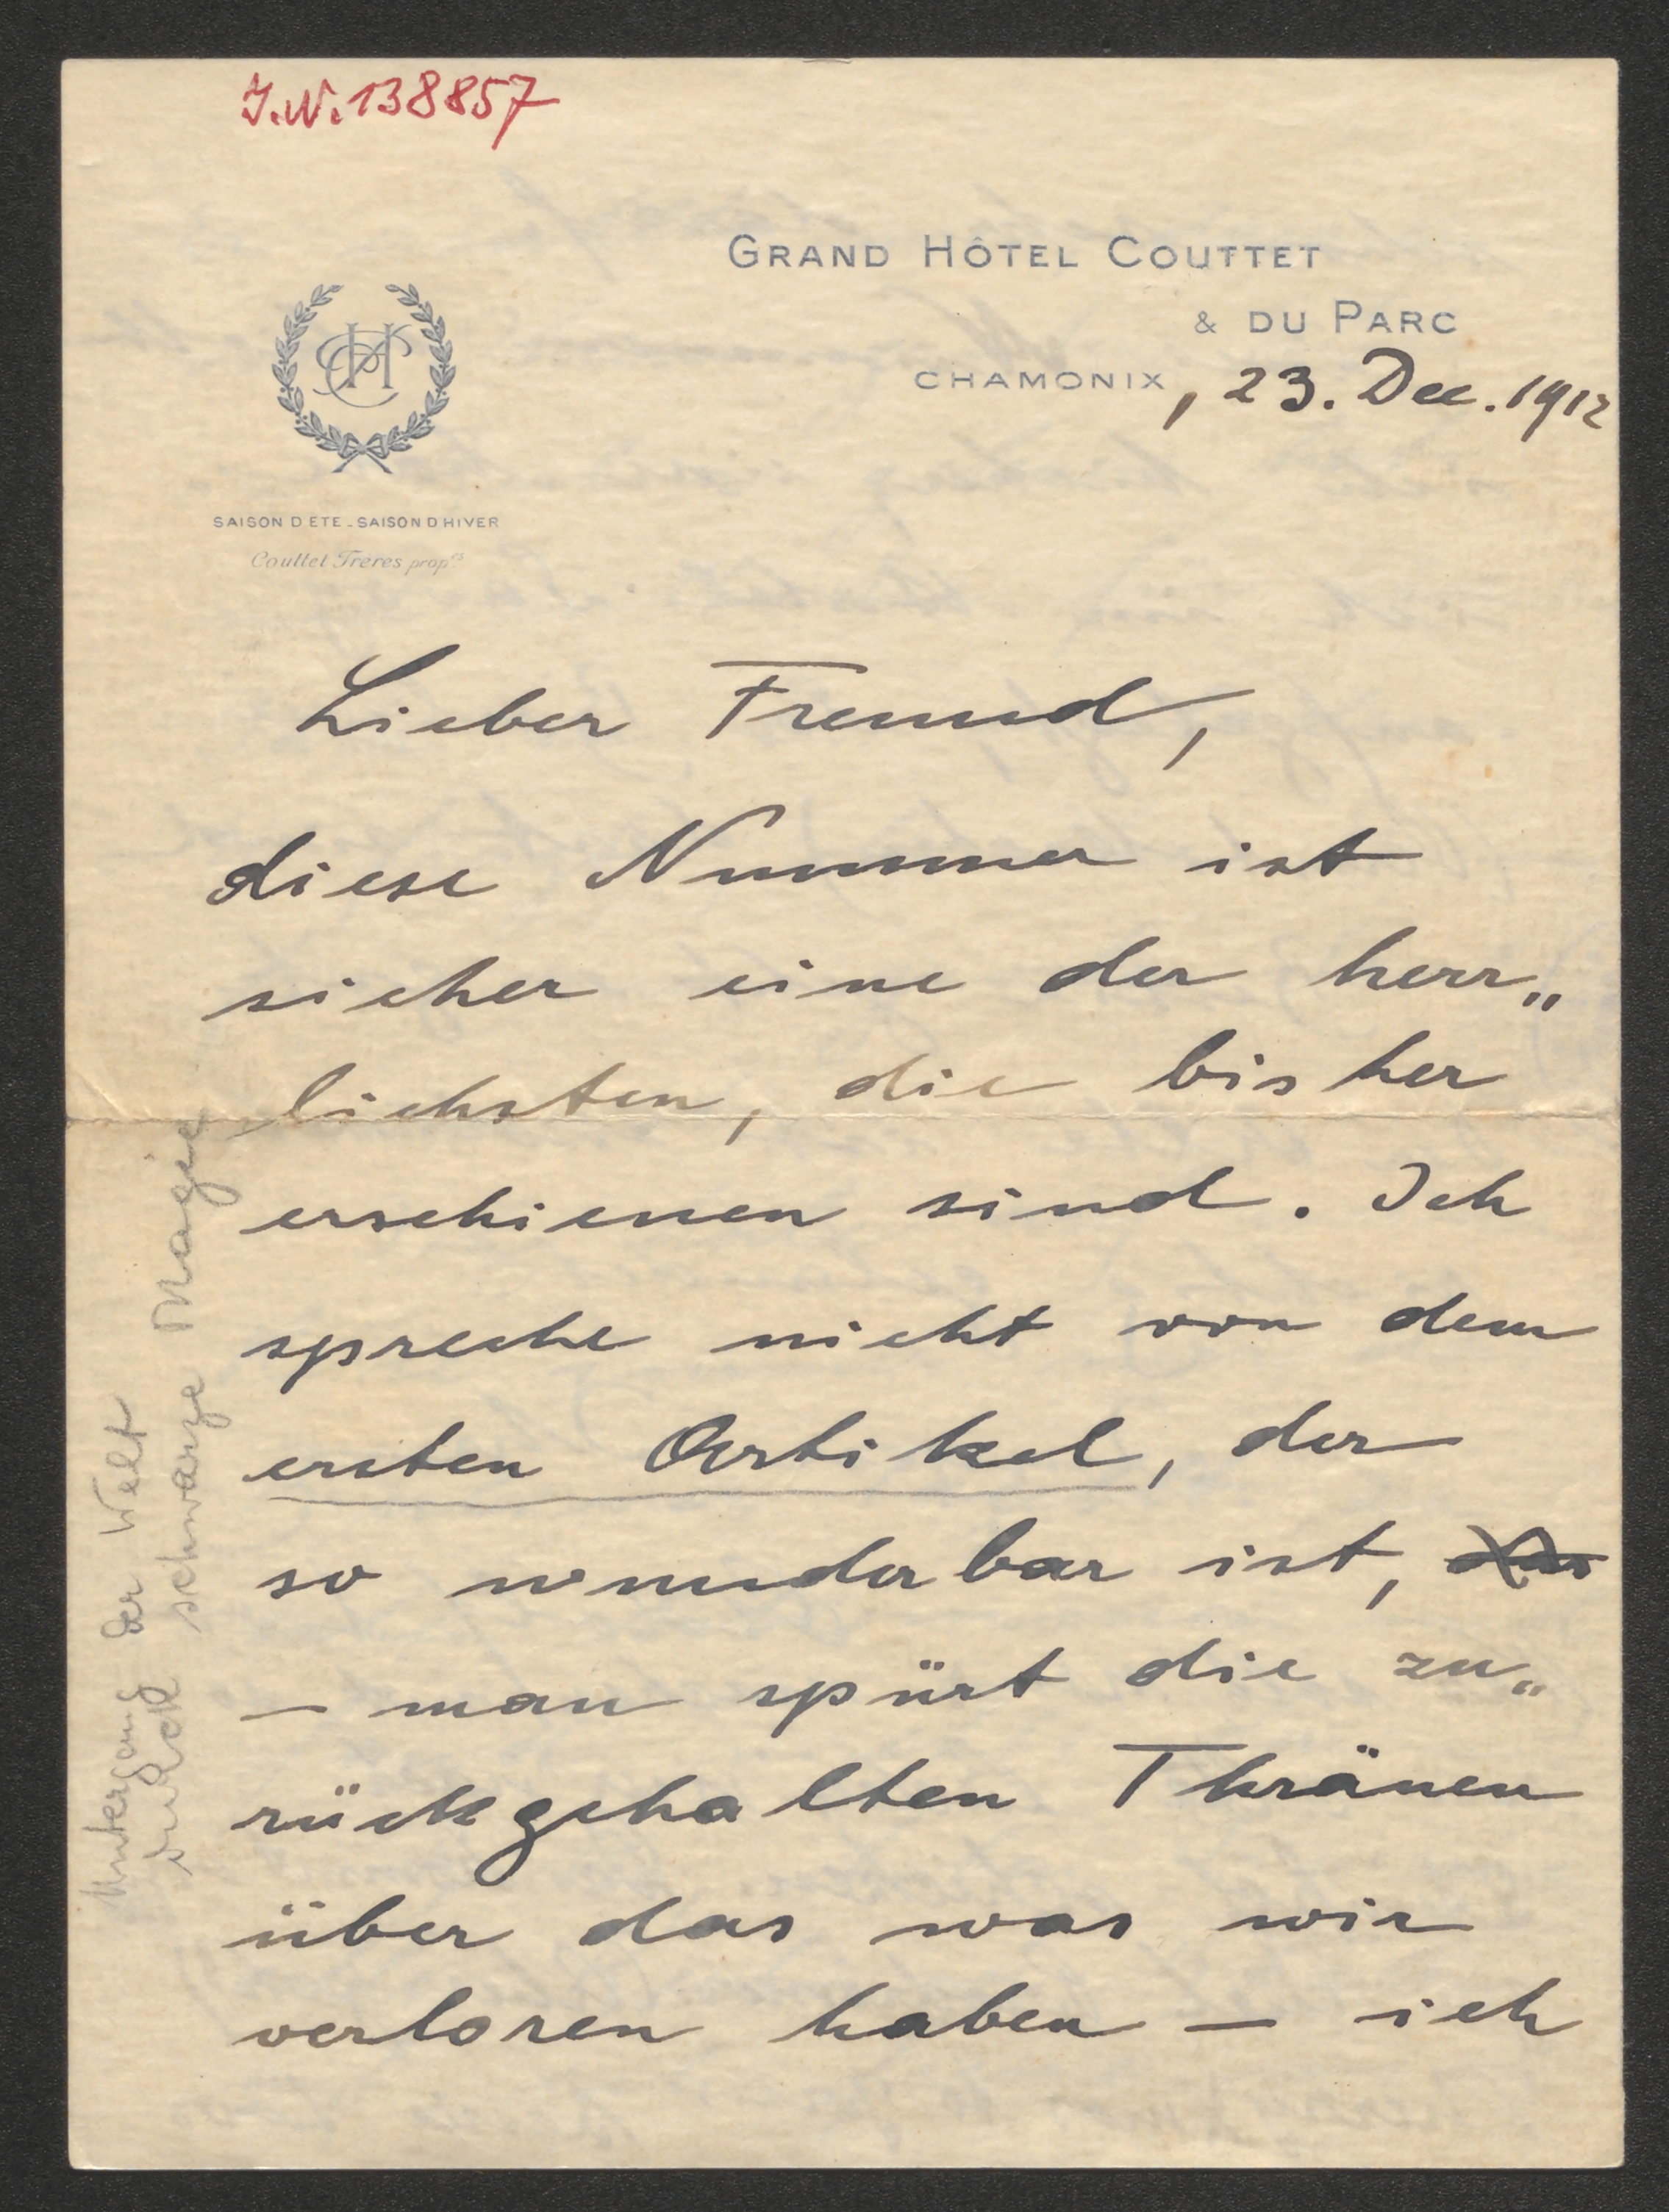 J.N. 138857
GRAND HÔTEL COUTTET
& DU PARC
CHAMONIX, 23. Dec. 1912
CH
SAISON D ETE - SAISON D HIVER
Couttet Frères propres
Lieber Freund,
diese Nummer ist
sicher eine der herr„
lichsten, die bisher
erschienen sind. Ich
spreche nicht von dem
ersten Artikel, der
so wunderbar ist, das
– man spürt die zu„
rückgehalten Thränen
über das was wir
verloren haben – ich
Untergang der Welt
durch schwarze Magie